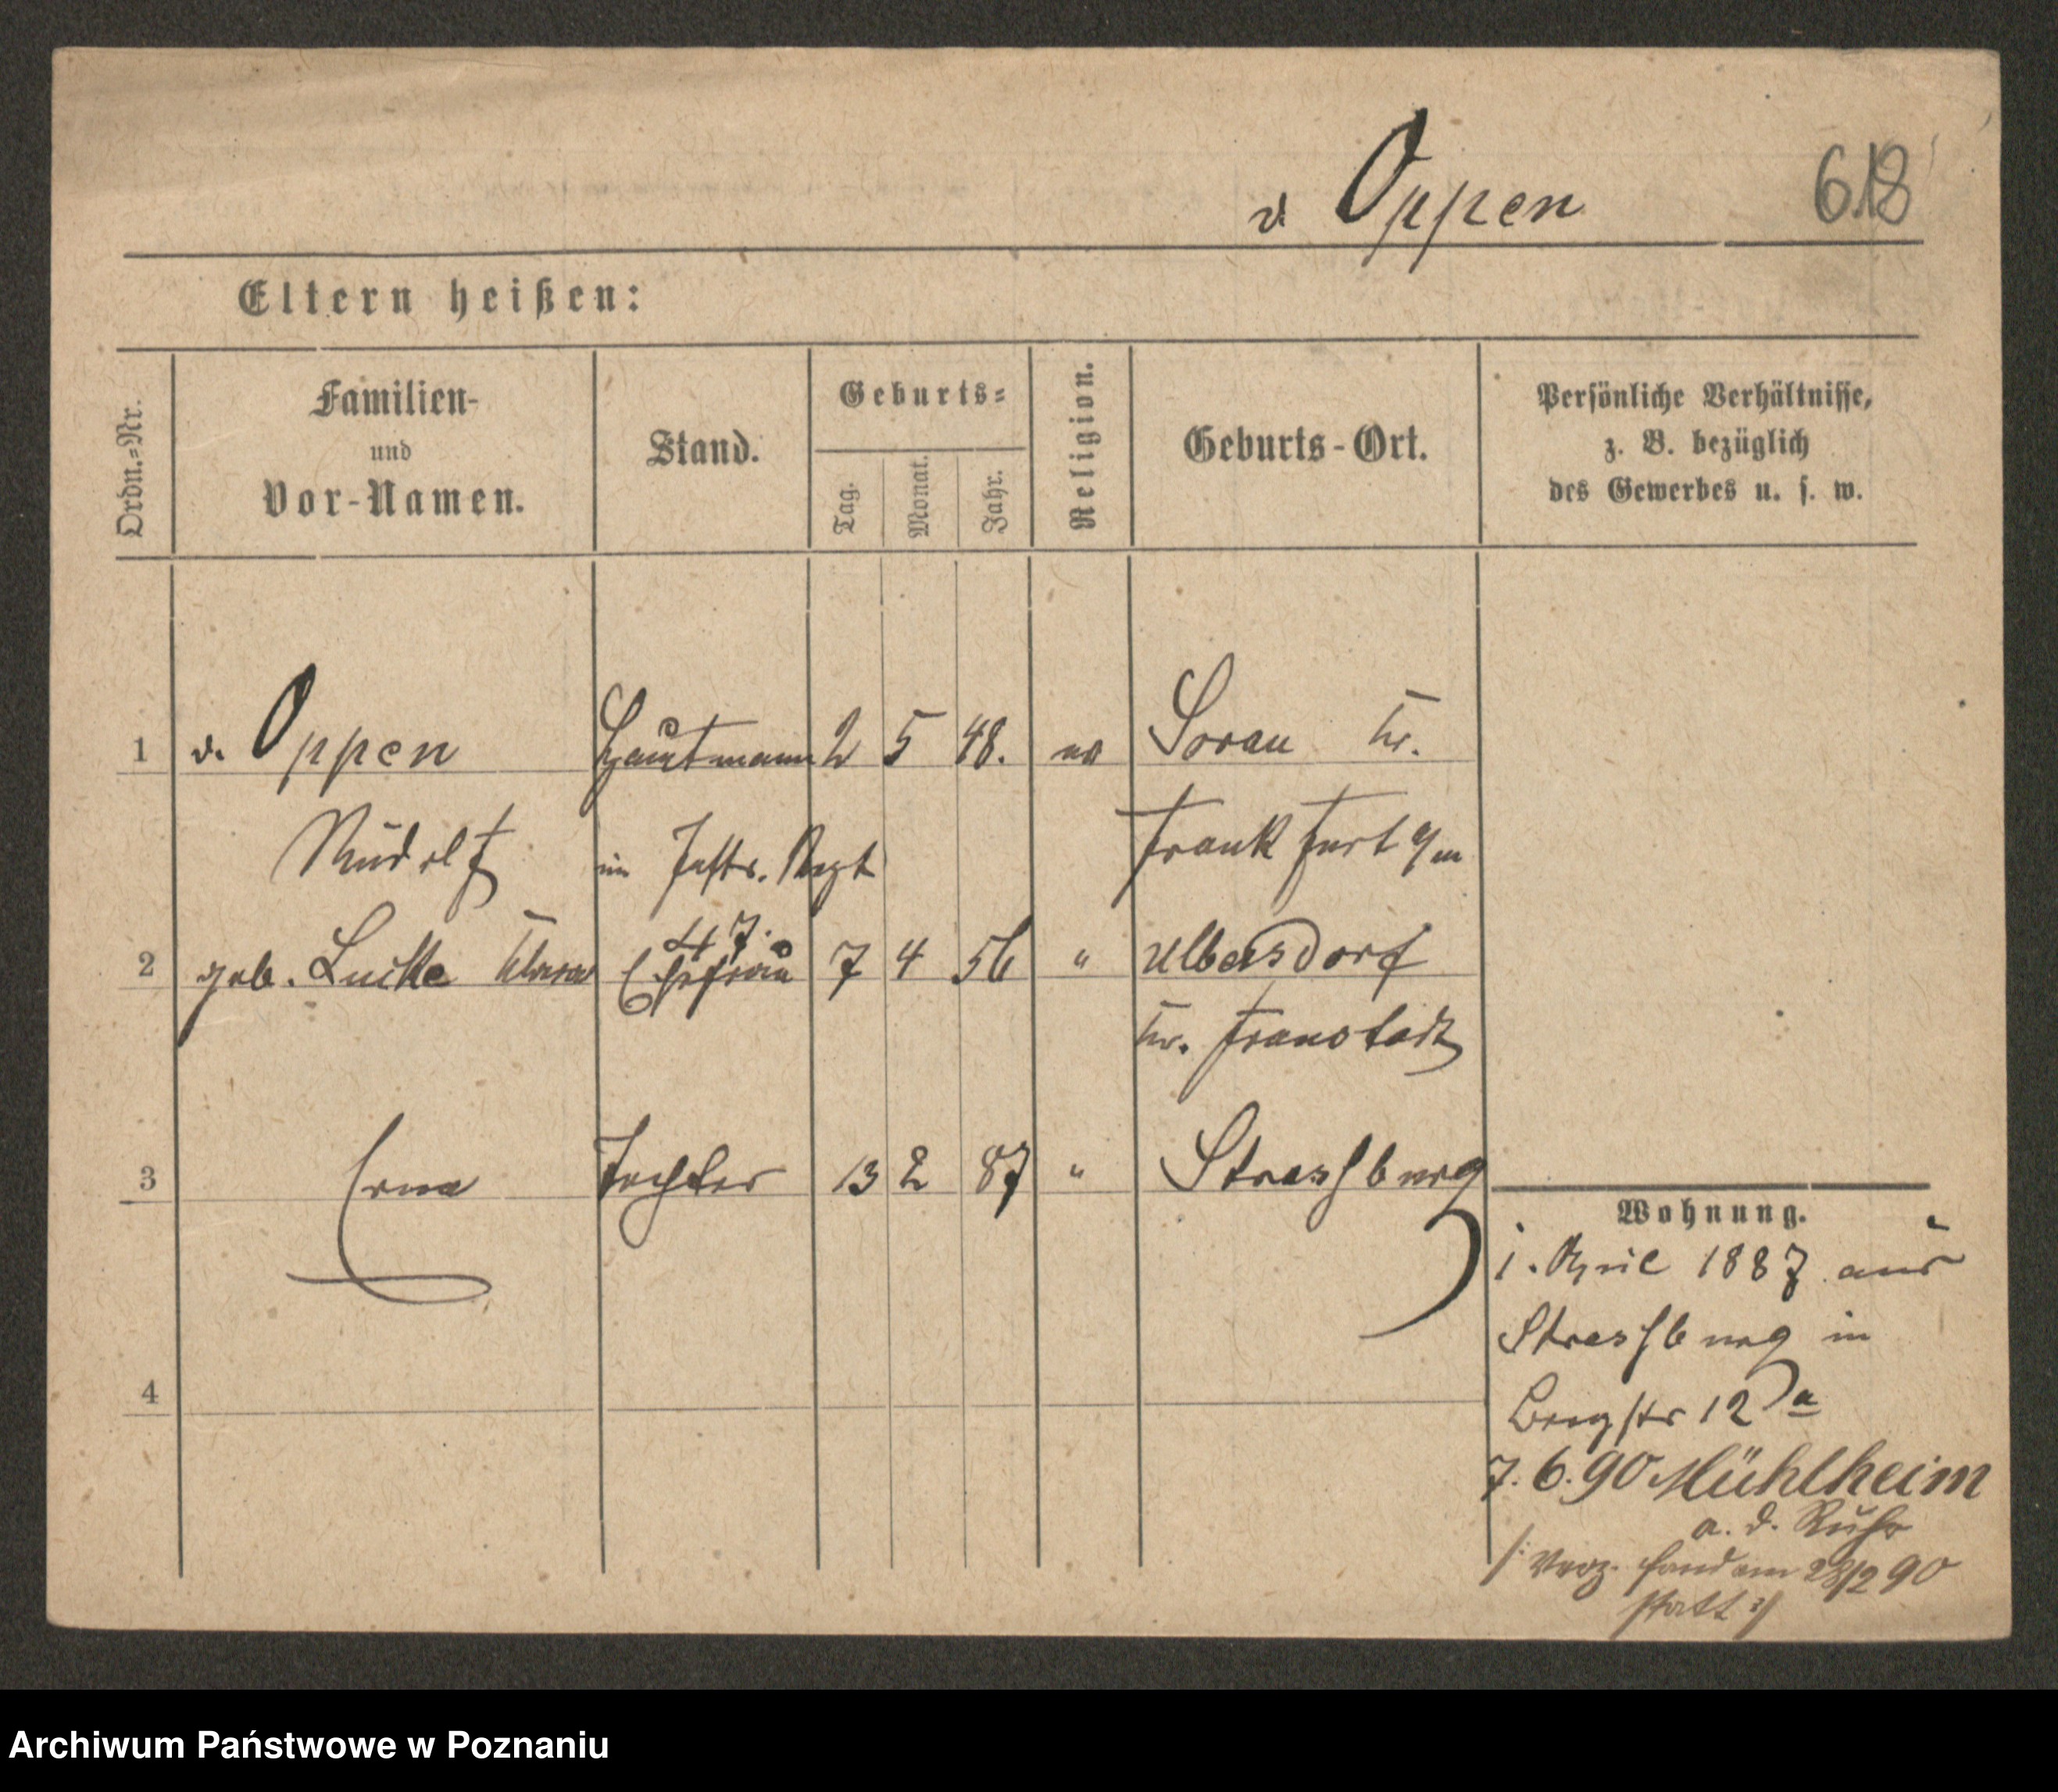 v. Oppen 618
Eltern heißen:
Ordn.=Nr.
Familien-
und
Vor-Namen.
Stand.
Geburts=
Tag.
Monat.
Jahr.
Religion.
Geburts-Ort.
Persönliche Verhältnisse,
z. B. bezüglich
des Gewerbes u. s. w.
1 v. Oppen Hauptmann 2 5 48. Sorau Kr.
Rudolf im Inftr. Regt Frankfurt
47.
2 geb. Lucke Klara Ehefrau 7 4 56 " Ulbersdorf
Kr. Fraustadt
3 Erna Tochter 13 2 87 " Strassburg
Wohnung.
1. April 1887 aus
Strassburg in
Bergstr 12a
4
7. 6. 90 Mühlheim
a. d. Ruhr
/: Verz. fand am 28/2 90
statt :/
Archiwum Państwowe w Poznaniu